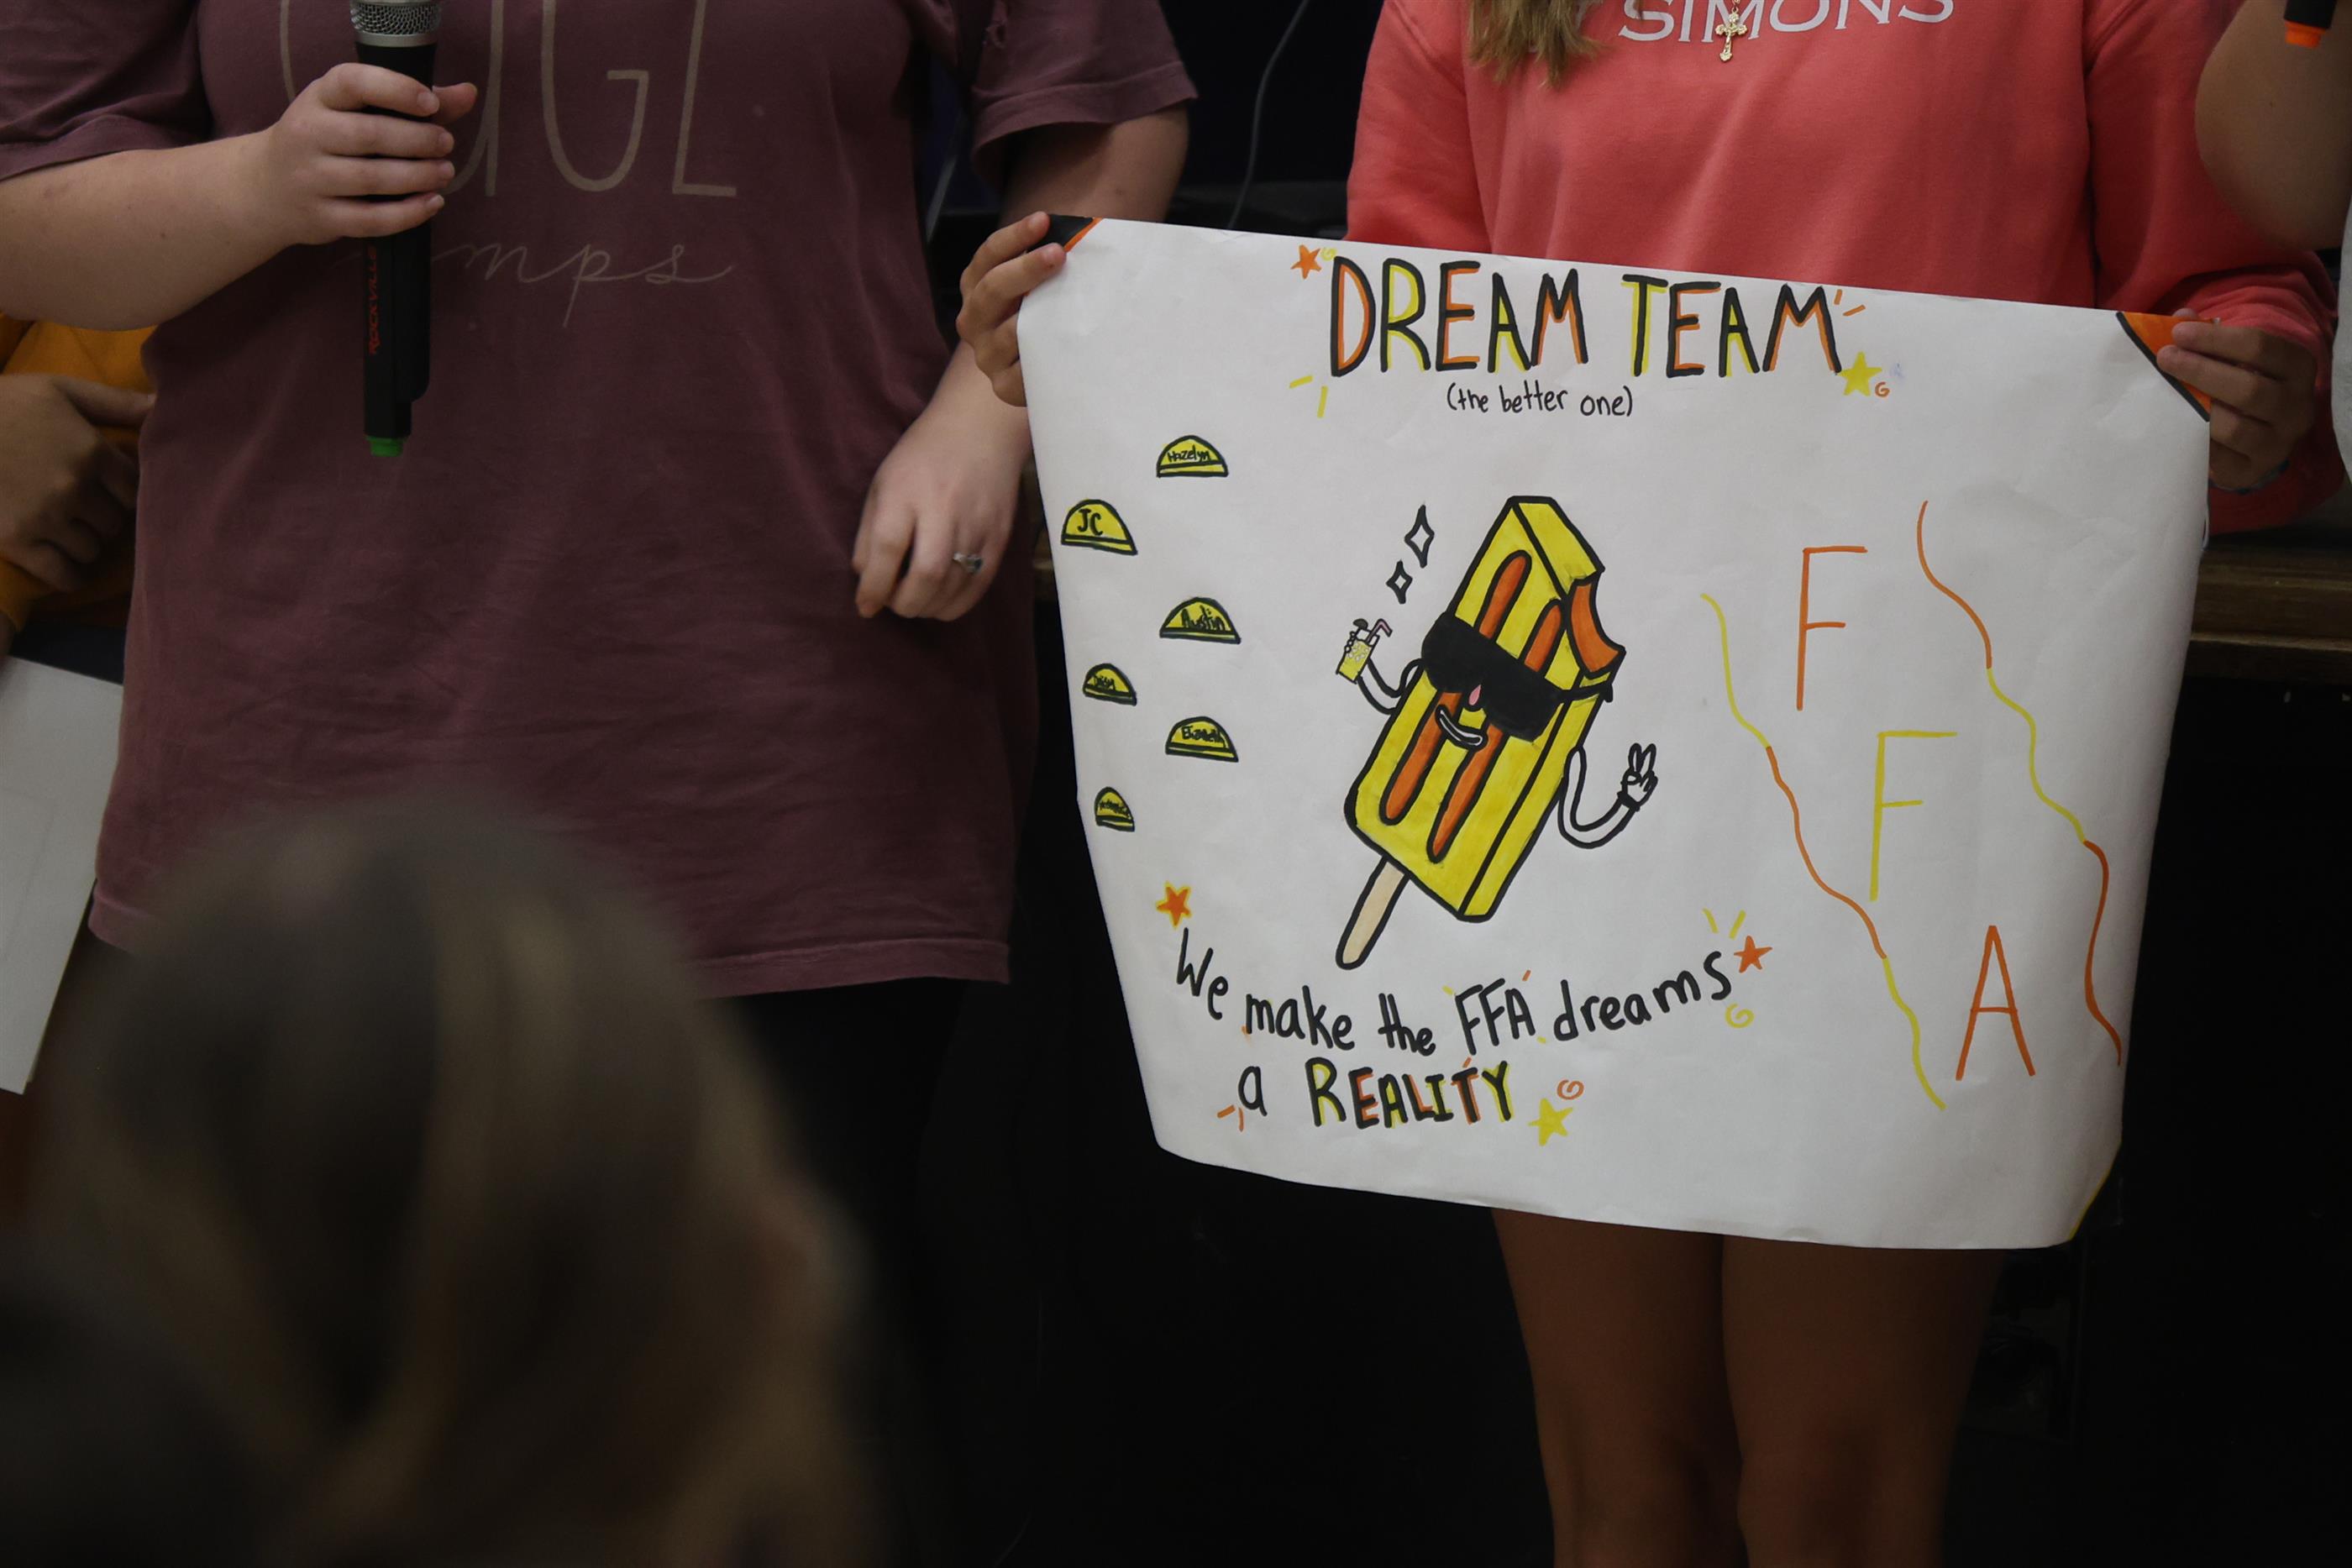 UGL
mps
ROCKVILLE
SIMONS
DREAM TEAM
(the better one)
Hazelyn
JC
Austin
We make the FFA dreams
a REALITY
F
F
A